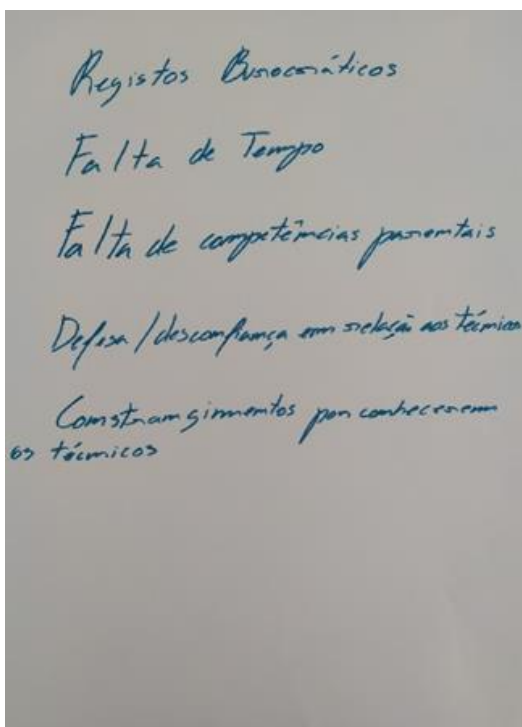 Registos Burocráticos
Falta de Tempo
Falta de competências parentais
Defesa / desconfiança em relação aos técnicos
Constrangimentos por conhecerem
os técnicos